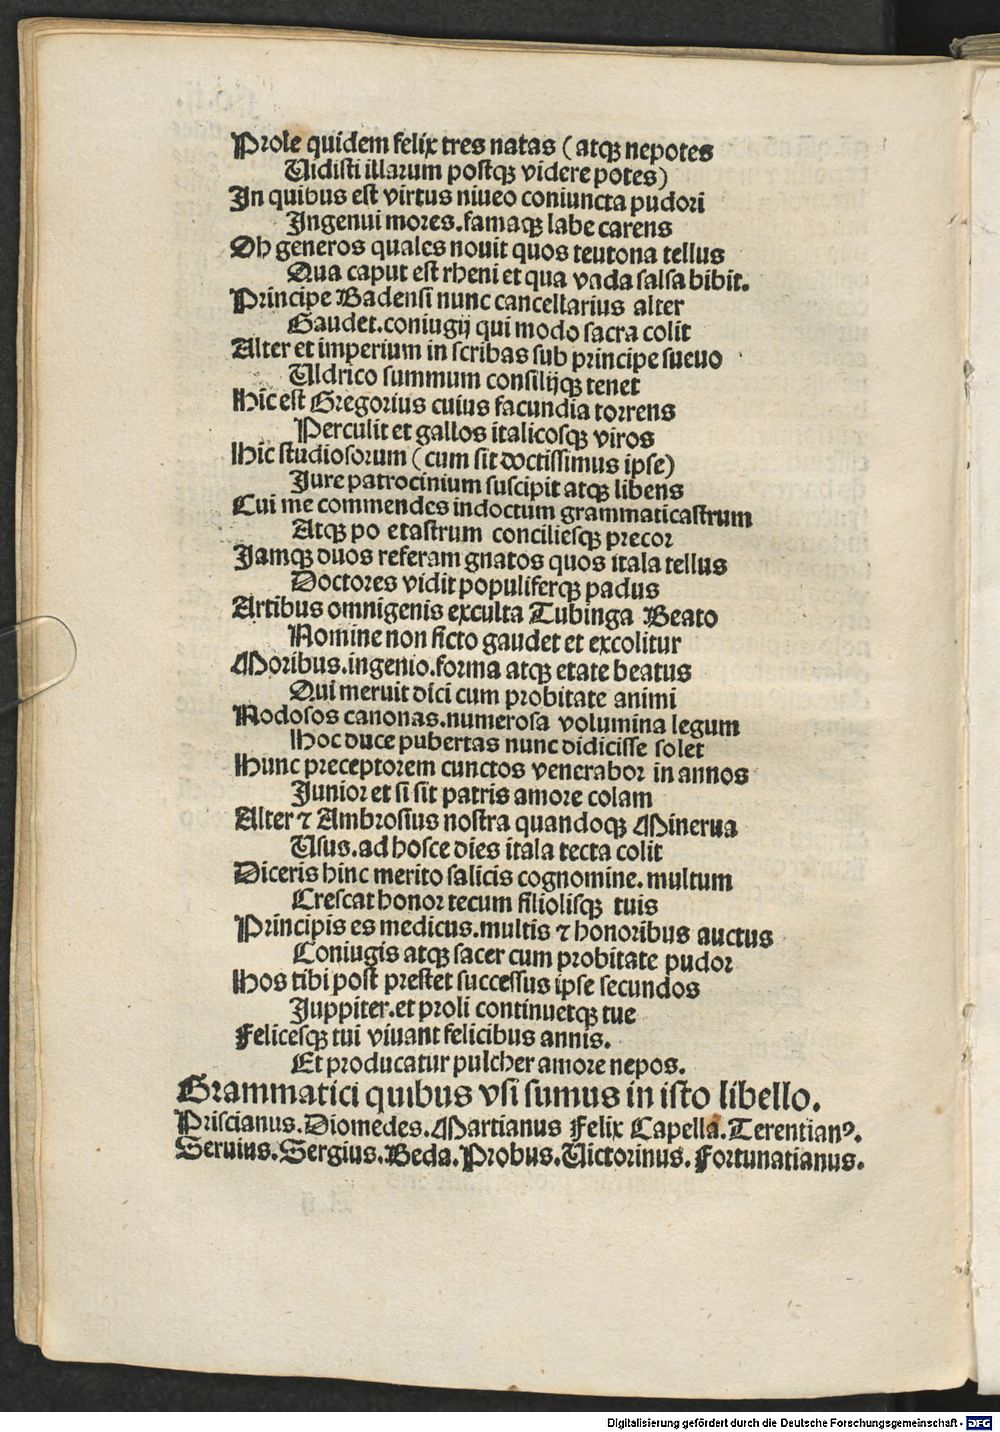 Prole quidem felix tres natas (atqꝫ nepotes
Uidisti illarum postqꝫ videre potes)
In quibus est virtus niueo coniuncta pudori
Ingenui mores.famaqꝫ labe carens
Oh generos quales nouit quos teutona tellus
Qua caput est rheni et qua vada salsa bibit.
Principe Badensi nunc cancellarius alter
Gaudet.coniugij qui modo sacra colit
Alter et imperium in scribas sub principe sueuo
Uldrico summum consilijqꝫ tenet
Hic est Gregorius cuius facundia torrens
Perculit et gallos italicosqꝫ viros
Hic studiosorum (cum sit doctissimus ipse)
Jure patrocinium suscipit atqꝫ libens
Cui me commendes indoctum grammaticastrum
Atqꝫ po etastrum conciliesqꝫ precor
Jamqꝫ duos referam gnatos quos itala tellus
Doctores vidit populiferqꝫ padus
Artibus omnigenis exculta Tubinga Beato
Nomine non ficto gaudet et excolitur
Moribus.ingenio.forma atqꝫ etate beatus
Qui meruit dici cum probitate animi
Nodosos canonas.numerosa volumina legum
Hoc duce pubertas nunc didicisse solet
Hunc preceptorem cunctos venerabor in annos
Junior et si sit patris amore colam
Alter ⁊ Ambrosius nostra quandoqꝫ Minerua
Usus.ad hosce dies itala tecta colit
Diceris hinc merito salicis cognomine. multum
Crescat honor tecum filiolisqꝫ tuis
Principis es medicus.multis ⁊ honoribus auctus
Coniugis atqꝫ sacer cum probitate pudor
Hos tibi post prestet successus ipse secundos
Juppiter.et proli continuetqꝫ tue
Felicesqꝫ tui viuant felicibus annis.
Et producatur pulcher amore nepos.
Grammatici quibus vsi sumus in isto libello.
Priscianus.Diomedes.Martianus Felix Capella.Terentianꝰ.
Seruius.Sergius.Beda.Probus.Uictorinus.Fortunatianus.
Digitalisierung gefördert durch die Deutsche Forschungsgemeinschaft - DFG